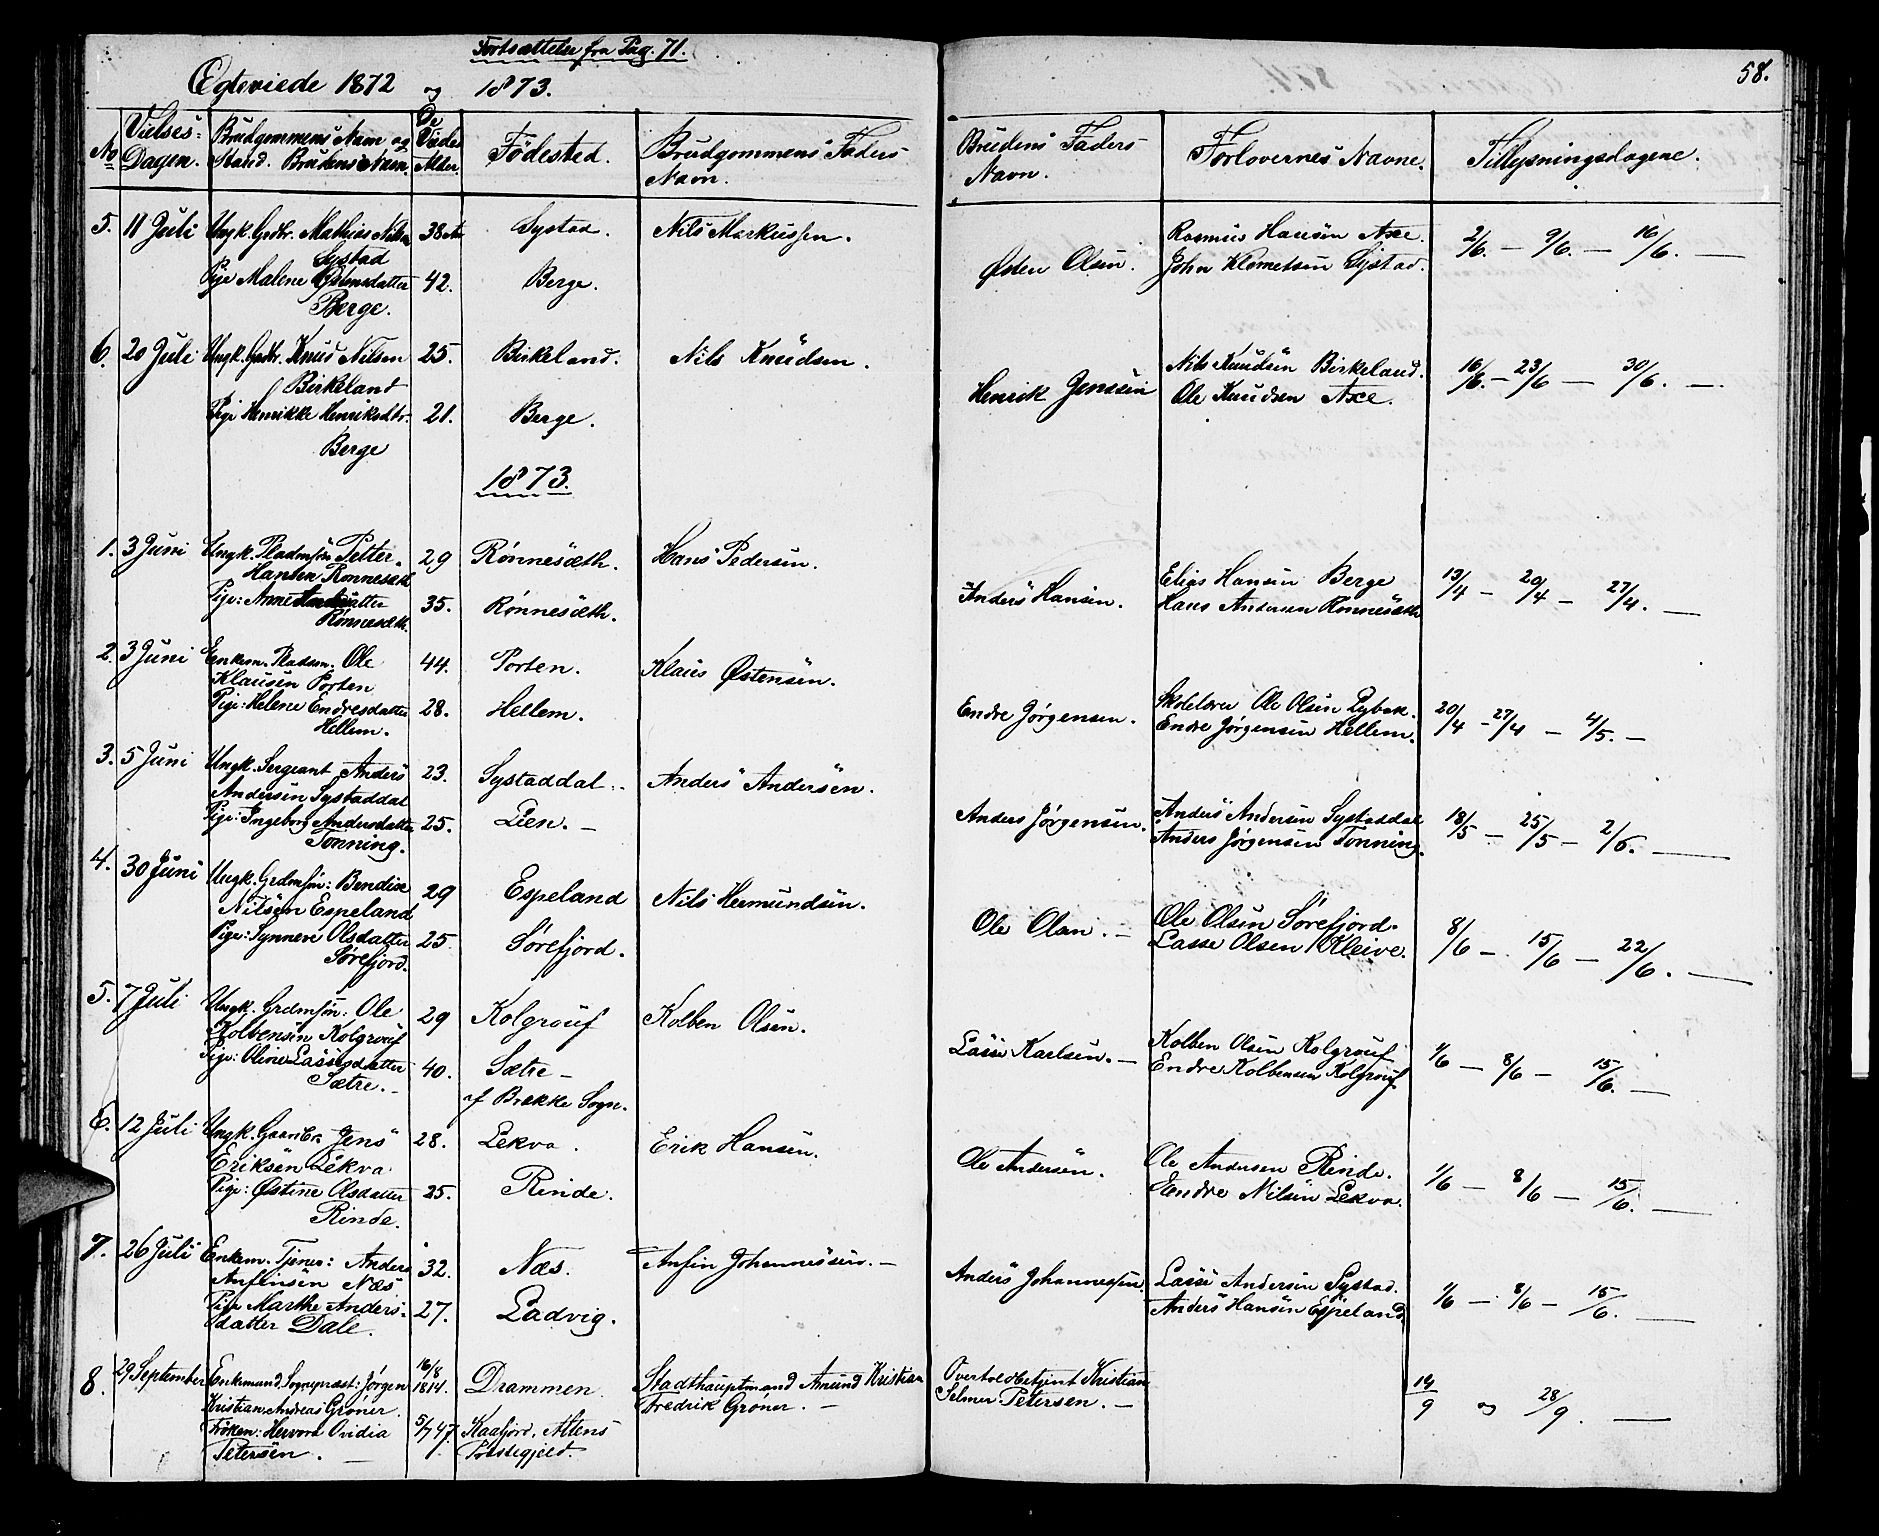 Fortsættelse fra Pag. 71.
58.
Egteviede 1872 og 1873.
No
Vielses-Dagen.
Brudgommens Navn og Stand. Brudens Navn.
De Viedes Alder.
Fødested.
Brudgommens Faders Navn.
Brudens Faders Navn.
Forlovernes Navne.
Tillysningsdagene.
5. 11 Juli Ungk. Grdbr. Mathias Nilsen 38 Aar Systad. Nils Markussen. Rasmus Hansen Axe. 2/6. — 9/6. — 16/6. —
Systad Østen Olsen. John Klemetsen Systad.
Pige Malene Østensdatter 42. Berge.
Berge.
6. 20 Juli Ungk. Grdbr. Knud Nilsen 25. Birkeland. Nils Knudsen. Nils Knudsen Birkeland. 16/6. — 23/6 — 30/6. —
Birkeland Henrik Jenssen Ole Knudsen Axe.
Pige Henrikke Henriksdtr. 21. Berge.
Berge
1873.
1. 3 Juni Ungk. Pladmsøn Petter 29 Rønnesæth. Hans Pedersen. Elias Hansen Berge 13/4 — 20/4 — 27/4. —
Hansen Rønnesæth Anders Hansen. Hans Andersen Rønnesæth
Pige: Anne Andersdatter 35. Rønnesæth.
Rønnesæth.
2. 3 Juni Enkem. Pladsm. Ole 44. Porten. Klaus Østensen. Skolelærer Ole Olsen Rybek. 20/4 — 27/4 — 4/5. —
Klausen Porten Endre Jørgensen. Endre Jørgensen Hellem.
Pige: Helene Endresdatter 28. Hellem.
Hellem.
3. 5 Juni Ungk. Sergeant Anders 23. Systaddal. Anders Andersen. Anders Andersen Systaddal 18/5 — 25/5 — 2/6. —
Andersen Systaddal Anders Jørgensen. Anders Jørgensen Tonning.
Pige: Ingeborg Andersdatter 25. Lien. —
Tonning.
4. 30 Juni Ungk. Grdmsøn: Bendix 29 Espeland Nils Hermundsen. Ole Olsen Sørefjord. 8/6 — 15/6 — 22/6. —
Nilsen Espeland Ole Olsen. — Lasse Olsen Kleive.
Pige: Synneve Olsdatter 25. Sørefjord.
Sørefjord.
5. 7 Juli Ungk. Grdmsøn: Ole 29 Kolgrouf Kolben Olsen. Kolben Olsen Kolgrouf 1/6 — 8/6 — 15/6. —
Kolbensen Kolgrouf Lasse Karlsen. — Endre Kolbensen Kolgrouf.
Pige: Oline Lassesdatter 40. Sætre —
Sætre. — af Brække Sogn.
6. 12 Juli Ungk. Gaardbr. Jens 28. Lekva. Erik Hansen. Ole Andersen Rinde. 1/6 — 8/6 — 15/6. —
Eriksen Lekva Ole Andersen. Endre Nilsen Lekva.
Pige: Østine Olsdatter 25. Rinde.
Rinde.
7. 26 Juli Enkem. Tjener: Anders 32. Næs. Anfin Johannessen. — Lasse Andersen Systad. 1/6 — 8/6 — 15/6. —
Anfinsen Næs Anders Johannessen. Anders Hansen Espeland
Pige Marthe Anders- 27. Ladvig.
datter Dale.
8. 29 September Enkemand, Sognepræst: Jørgen 16/8 1814. Drammen Stadthauptmand Amund Kristian Overtoldbetjent Kristian 14/9 og 28/9. —
Kristian Andreas Grøner. Fredrik Grøner. — Selmer Petersen. —
Frøken: Hervora Ovidia 5/7 47. Kaafjord, Altens
Petersen. — Præstegjeld.